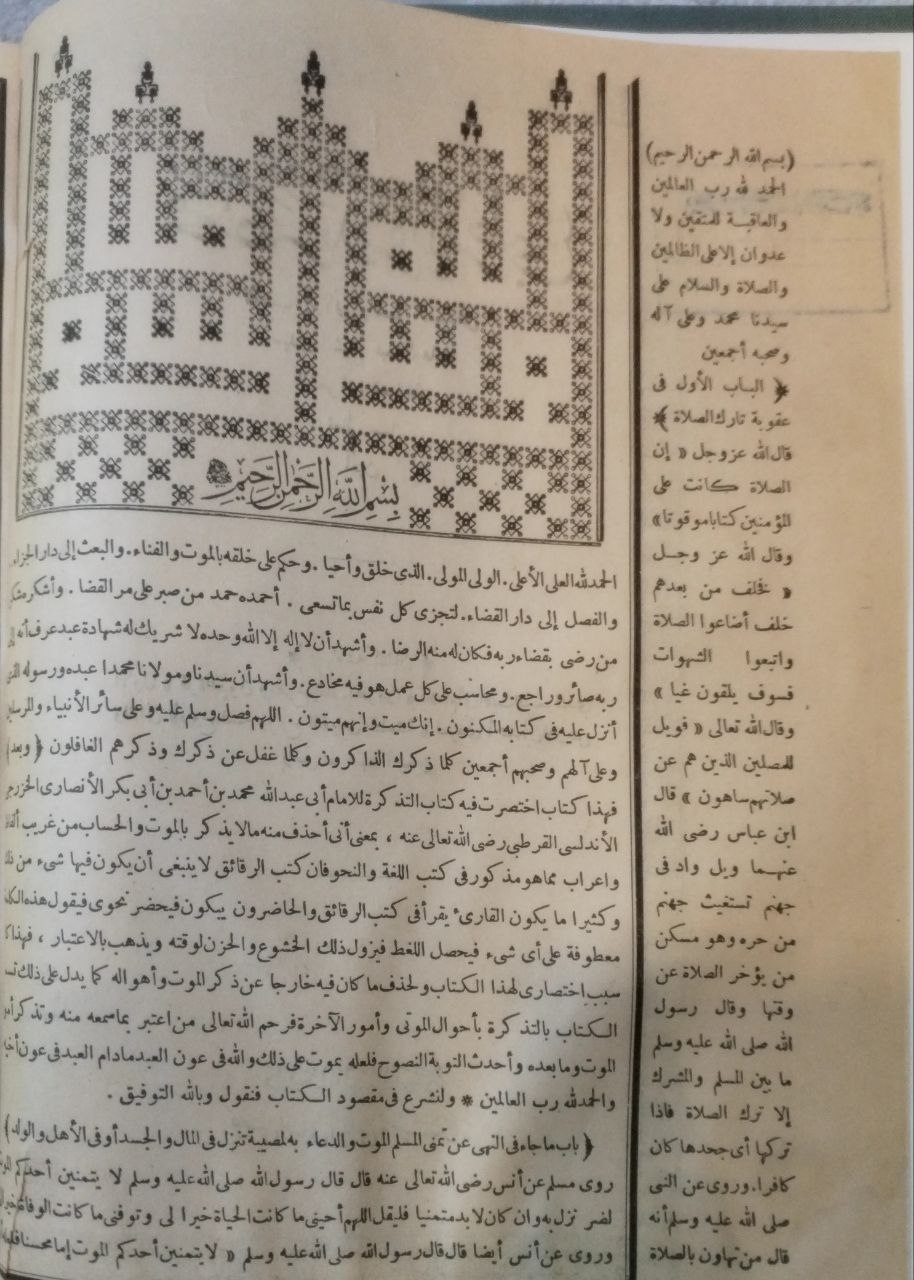 بسم الله الرحمن الرحيم
الحمد لله العلى الأعلى. الولى المولى. الذى خلق وأحيا. وحكم على خلقه بالموت والفناء. والبعث إلى دار الجزاء
والفصل إلى دار القضاء. لتجزى كل نفس بما تسعى. أحمده حمد من صبر على مر القضا. وأشكره شكر
من رضى بقضاء ربه فكان له منه الرضا. وأشهد أن لا إله إلا الله وحده لا شريك له شهادة عبد عرف أنه إلى
ربه صائر وراجع. ومحاسب على كل عمل هو فيه مخادع. وأشهد أن سيدنا ومولانا محمدا عبده ورسوله الذى
أنزل عليه فى كتابه المكنون. إنك ميت وإنهم ميتون. اللهم فصل وسلم عليه وعلى سائر الأنبياء والمرسلين
وعلى آلهم وصحبهم أجمعين كلما ذكرك الذاكرون وكلما غفل عن ذكرك وذكرهم الغافلون ﴿وبعد﴾
فهذا كتاب اختصرت فيه كتاب التذكرة للامام أبى عبد الله محمد بن أحمد بن أبى بكر الأنصارى الخزرجى
الأندلسى القرطبى رضى الله تعالى عنه ، بمعنى أنى أحذف منه مالا يذكر بالموت والحساب من غريب
واعراب مما هو مذكور فى كتب اللغة والنحو فان كتب الرقائق لا ينبغى أن يكون فيها شىء من
وكثيرا ما يكون القارئ يقرأ فى كتب الرقائق والحاضرون يبكون فيحضر نحوى فيقول هذه
معطوفة على أى شىء فيحصل اللغط فيزول ذلك الخشوع والحزن لوقته ويذهب بالاعتبار ، فهذا
سبب اختصارى لهذا الكتاب ولحذف ما كان فيه خارجا عن ذكر الموت وأهواله كما يدل على ذلك
الكتاب بالتذكرة بأحوال الموتى وأمور الآخرة فرحم الله تعالى من اعتبر بما سمعه منه وتذكر
الموت وما بعده وأحدث التوبة النصوح فلعله يموت على ذلك والله فى عون العبد مادام العبد فى عون
والحمد لله رب العالمين * ولنشرع فى مقصود الكتاب فنقول وبالله التوفيق .
﴿باب ما جاء فى النهى عن تمنى المسلم الموت والدعاء به لمصيبة تنزل فى المال والجسد أو فى الأهل والولد﴾
روى مسلم عن أنس رضى الله تعالى عنه قال قال رسول الله صلى الله عليه وسلم لا يتمنين أحدكم
لضر نزل به وان كان لا بد متمنيا فليقل اللهم أحينى ما كانت الحياة خيرا لى وتوفنى ما كانت الوفاة
وروى عن أنس أيضا قال قال رسول الله صلى الله عليه وسلم « لا يتمنين أحدكم الموت إما محسنا
(بسم الله الرحمن الرحيم)
الحمد لله رب العالمين
والعاقبة للمتقين ولا
عدوان إلا على الظالمين
والصلاة والسلام على
سيدنا محمد وعلى آله
وصحبه أجمعين
﴿ الباب الأول فى
عقوبة تارك الصلاة ﴾
قال الله عز وجل « إن
الصلاة كانت على
المؤمنين كتابا موقوتا»
وقال الله عز وجل
« فخلف من بعدهم
خلف أضاعوا الصلاة
واتبعوا الشهوات
فسوف يلقون غيا »
وقال الله تعالى « فويل
للمصلين الذين هم عن
صلاتهم ساهون » قال
ابن عباس رضى الله
عنهما ويل واد فى
جهنم تستغيث جهنم
من حره وهو مسكن
من يؤخر الصلاة عن
وقتها وقال رسول
الله صلى الله عليه وسلم
ما بين المسلم والمشرك
إلا ترك الصلاة فاذا
تركها أى جحدها كان
كافرا. وروى عن النبى
صلى الله عليه وسلم أنه
قال من تهاون بالصلاة